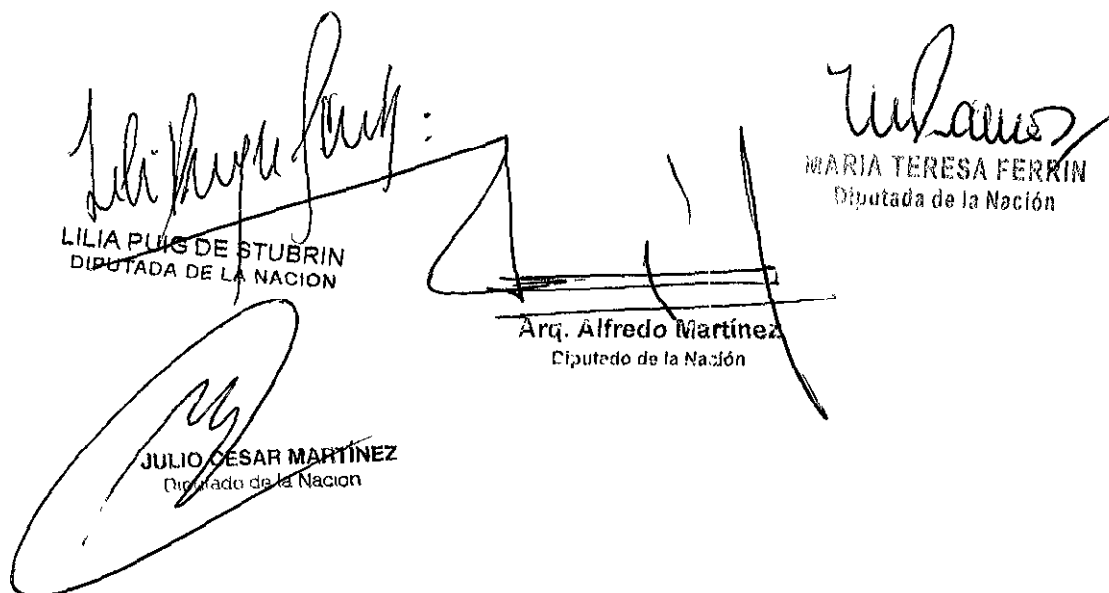 MARIA TERESA FERRIN
Diputada de la Nación
LILIA PUIG DE STUBRIN
DIPUTADA DE LA NACION
Arq. Alfredo Martínez
Diputado de la Nación
JULIO CESAR MARTÍNEZ
Diputado de la Nacion